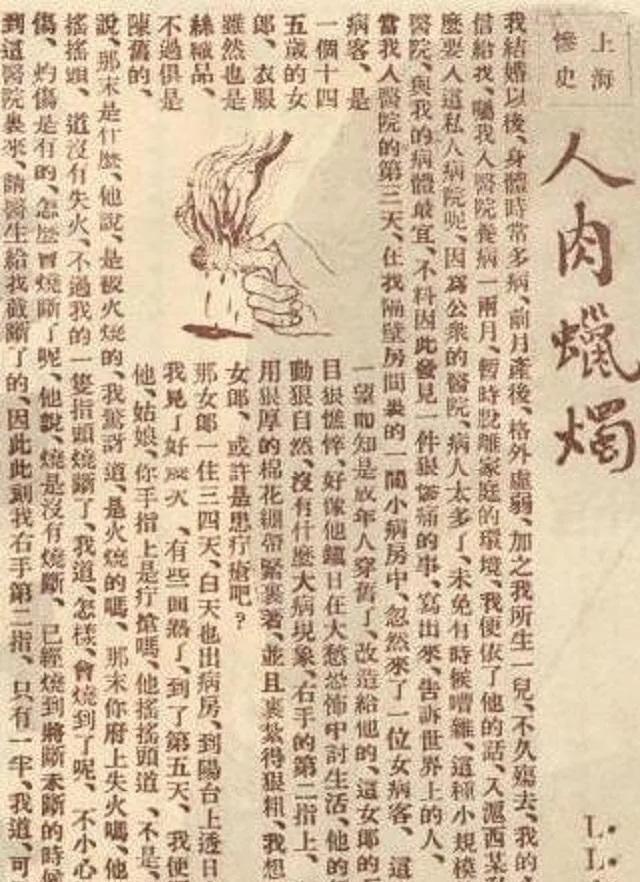 上海
慘史
人肉蠟燭
L.
L.
我結婚以後、身體時常多病、前月產後、格外虛弱、加之我所生一兒、不久殤去、我的
信給我、囑我入醫院養病一兩月、暫時脫離家庭的環境、我便依了他的話、入滬西某
麼要入這私人病院呢、因爲公衆的醫院、病人太多了、未免有時候嘈雜、這種小規模
醫院、與我的病體最宜、不料因此發見一件狠慘痛的事、寫出來、告訴世界上的人、
當我入醫院的第三天、在我隔壁房間裏的一間小病房中、忽然來了一位女病客、這
病客、是
一個十四
五歲的女
郎、衣服
雖然也是
絲織品、
不過俱是
陳舊的、
一望而知是成年人穿舊了、改造給他的、這女郎的
目狠憔悴、好像他鎭日在大愁恐怖中討生活、他的
動狠自然、沒有什麼大病現象、右手的第二指上、
用狠厚的棉花綳帶緊裹著、並且裹紮得狠粗、我想
女郎、或許是患疔瘡吧？
那女郎一住三四天、白天也出病房、到陽台上透日
我見了好幾次、有些面熟了、到了第五天、我便
他、姑娘、你手指上是疔瘡嗎、他搖搖頭道、不是、
說、那末是什麼、他說、是被火燒的、我驚訝道、是火燒的嗎、那末你府上失火嗎、他
搖搖頭、道沒有失火、不過我的一隻指頭燒斷了、我道、怎樣、會燒到了呢、不小心
傷、灼傷是有的、怎麼會燒斷了呢、他說、燒是沒有燒斷、已經燒到將斷未斷的時候
到這醫院裏來、請醫生給我截斷了的、因此此刻我右手第二指、只有一半、我道、可